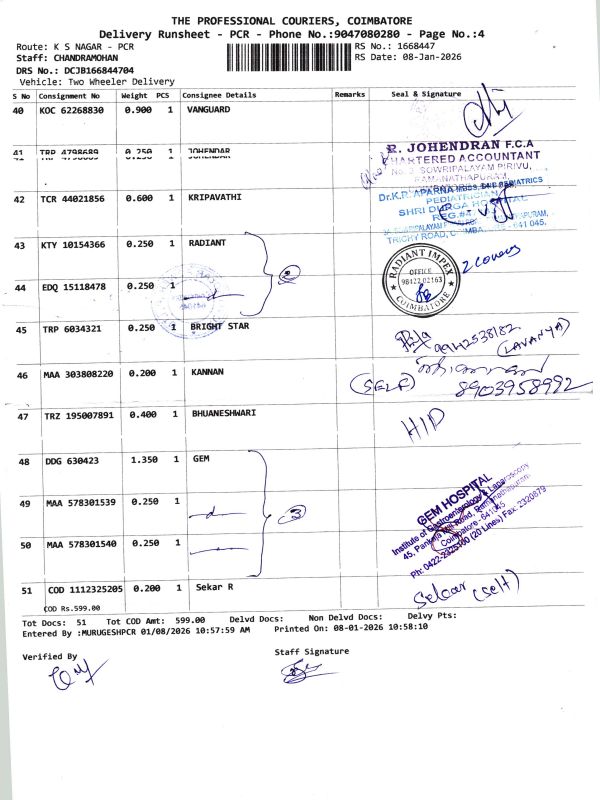 THE PROFESSIONAL COURIERS, COIMBATORE
Delivery Runsheet - PCR - Phone No.:9047080280 - Page No.:4
Route: K S NAGAR - PCR RS No.: 1668447
Staff: CHANDRAMOHAN RS Date: 08-Jan-2026
DRS No.: DCJB166844704
Vehicle: Two Wheeler Delivery
S No Consignment No Weight PCS Consignee Details Remarks Seal & Signature
40 KOC 62268830 0.900 1 VANGUARD
41 TRP 4798689 0.250 1 JOHENDAR
R. JOHENDRAN F.C.A
CHARTERED ACCOUNTANT
SOWRIPALAYAM PIRIVU,
RAMANATHAPURAM,
42 TCR 44021856 0.600 1 KRIPAVATHI
Dr.K.R. APARNA
PEDIATRICIAN
SHRI DURGA HOSPITAL
TRICHY ROAD,
43 KTY 10154366 0.250 1 RADIANT
RADIANT IMPEX
OFFICE
98422 02163
COIMBATORE
2 covers
2
44 EDQ 15118478 0.250 1
45 TRP 6034321 0.250 1 BRIGHT STAR
9942538182
(LAVANYA)
46 MAA 303808220 0.200 1 KANNAN
(SELF) 8903958992
47 TRZ 195007891 0.400 1 BHUANESHWARI
H/D
48 DDG 630423 1.350 1 GEM
49 MAA 578301539 0.250 1
3
50 MAA 578301540 0.250 1
GEM HOSPITAL
Institute of Gastroenterology & Laparoscopy
45, Pankaja Mill Road, Ramanathapuram,
Coimbatore - 641045
Ph: 0422-2325100 (20 Lines) Fax: 2320879
51 COD 1112325205 0.200 1 Sekar R
COD Rs.599.00
Sekar (self)
Tot Docs: 51 Tot COD Amt: 599.00 Delvd Docs: Non Delvd Docs: Delvy Pts:
Entered By :MURUGESHPCR 01/08/2026 10:57:59 AM Printed On: 08-01-2026 10:58:10
Verified By Staff Signature